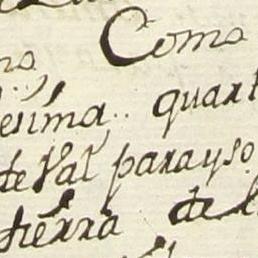 no, Como
esima quart
de Val parayso
tierra de l